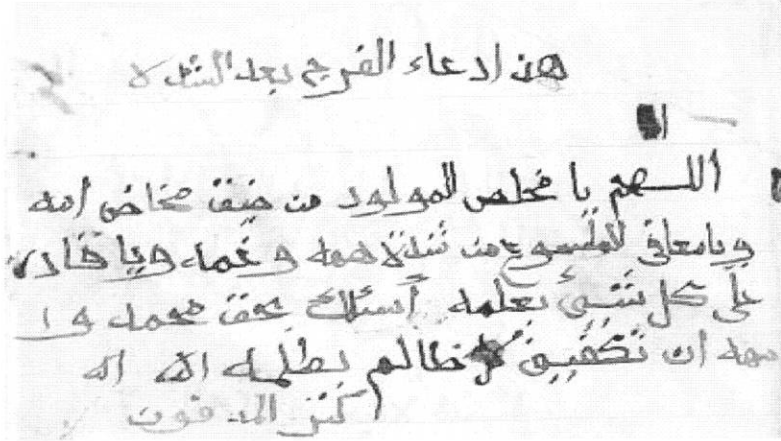 هذا دعاء الفرج بعد الشدة
اللهم يا مخلص المولود من ضيق مخاض امه
ويا معافي الملسوع من شدة همه وغمه ويا قادر
على كل شئ بعلمه أسئلك بحق محمد و ا
ان تكفيني كل ظالم بظلمه اﻫ
كنز المدفون